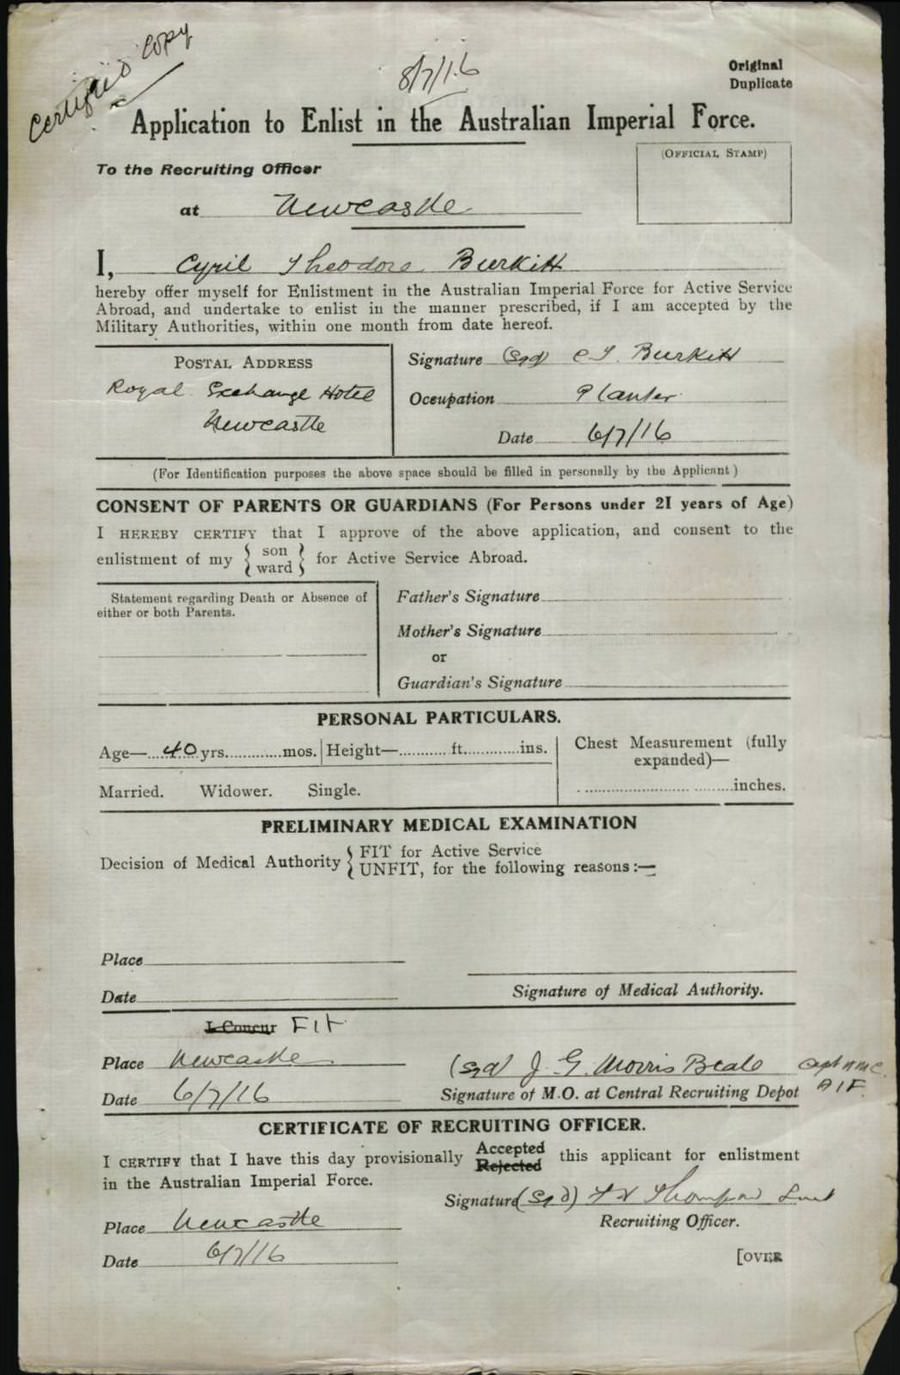 Certified Copy
8/7/16
Original
Duplicate
Application to Enlist in the Australian Imperial Force.
To the Recruiting Officer
(OFFICIAL STAMP)
at Newcastle
I, Cyril Theodore Burkitt
hereby offer myself for Enlistment in the Australian Imperial Force for Active Service
Abroad, and undertake to enlist in the manner prescribed, if I am accepted by the
Military Authorities, within one month from date hereof.
POSTAL ADDRESS
Royal Exchange Hotel
Newcastle
Signature (Sgd) C T Burkitt
Occupation Planter
Date 6/7/16
(For Identification purposes the above space should be filled in personally by the Applicant)
CONSENT OF PARENTS OR GUARDIANS (For Persons under 21 years of Age)
I HEREBY CERTIFY that I approve of the above application, and consent to the
enlistment of my { son ward } for Active Service Abroad.
Statement regarding Death or Absence of
either or both Parents.
Father's Signature
Mother's Signature
or
Guardian's Signature
PERSONAL PARTICULARS.
Age—....40 yrs.............mos. Height—........... ft.............ins. Chest Measurement (fully
expanded)—
Married. Widower. Single. ..........................inches.
PRELIMINARY MEDICAL EXAMINATION
Decision of Medical Authority { FIT for Active Service
UNFIT, for the following reasons:—
Place
Date
Signature of Medical Authority.
I Concur FIT
Place Newcastle
(Sgd) J. G. Morris Beale Capt AMC
AIF
Date 6/7/16
Signature of M.O. at Central Recruiting Depot
CERTIFICATE OF RECRUITING OFFICER.
I CERTIFY that I have this day provisionally Accepted Rejected this applicant for enlistment
in the Australian Imperial Force.
Signature (Sgd) Thompson Lieut
Place Newcastle
Recruiting Officer.
Date 6/7/16
[OVER